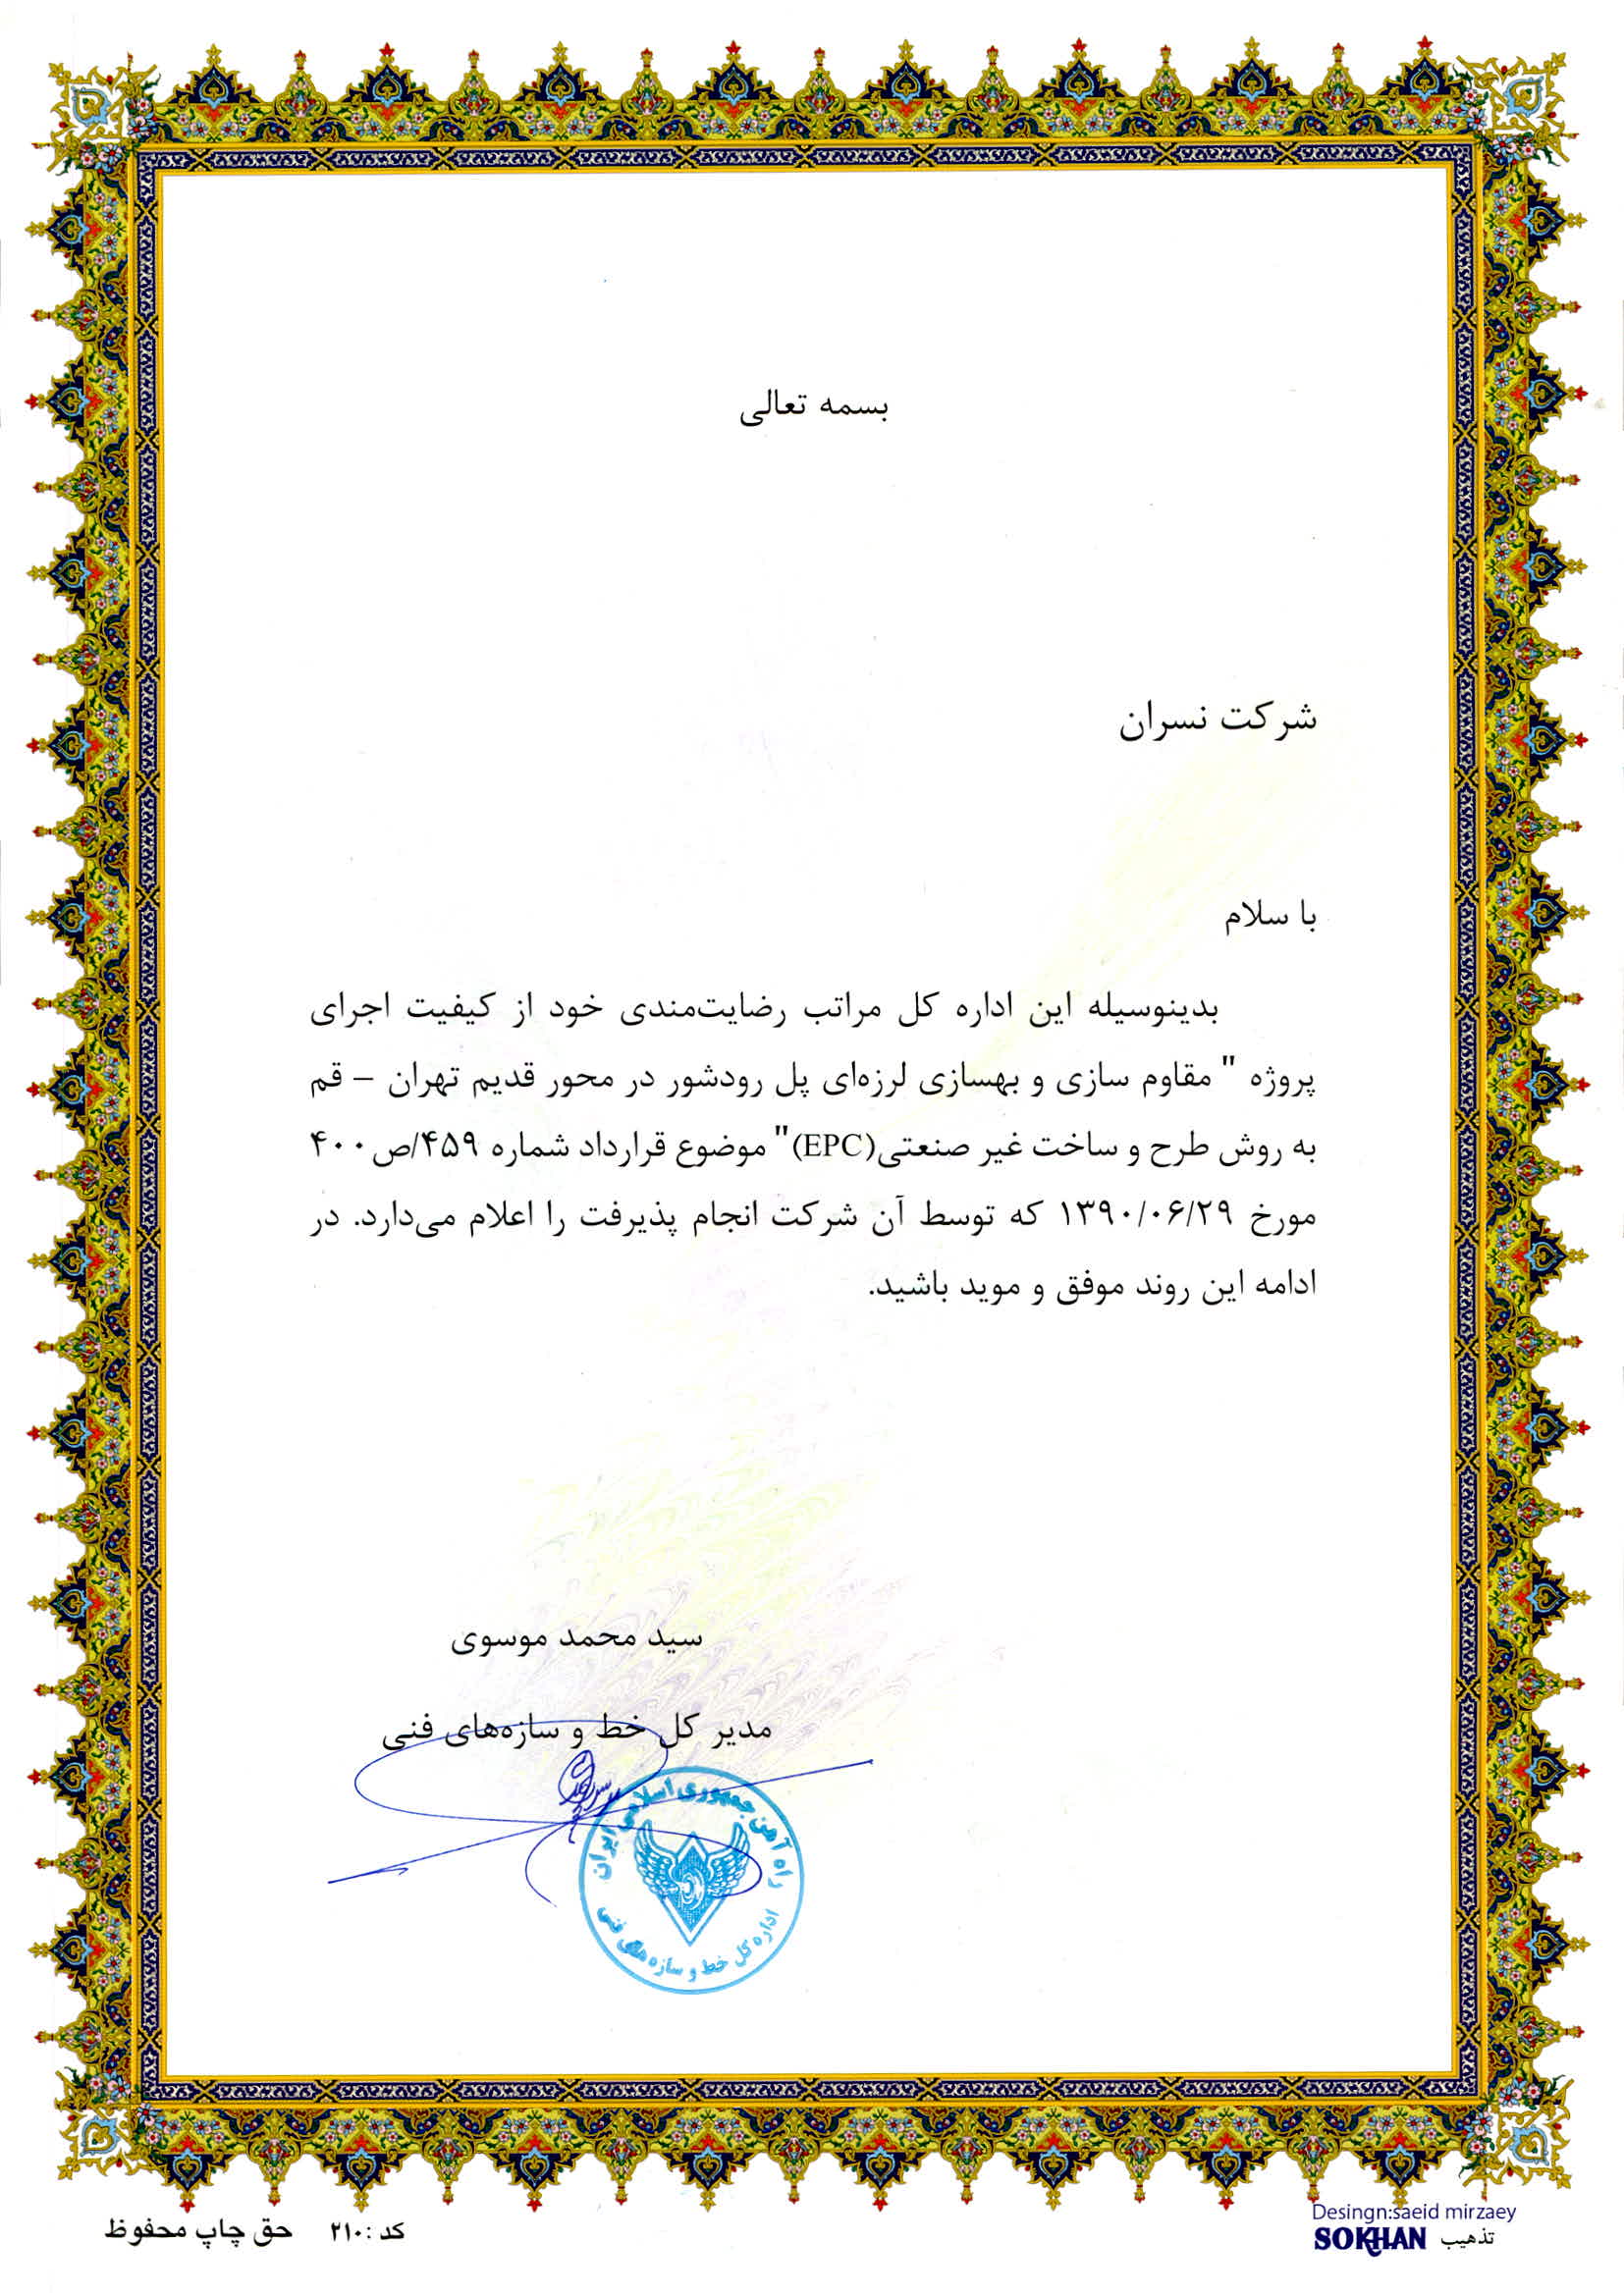 بسمه تعالی
شرکت نسران
با سلام
بدینوسیله این اداره کل مراتب رضایت‌مندی خود از کیفیت اجرای
پروژه " مقاوم سازی و بهسازی لرزه‌ای پل رودشور در محور قدیم تهران – قم
به روش طرح و ساخت غیر صنعتی(EPC)" موضوع قرارداد شماره ۴۵۹/ص۴۰۰
مورخ ۱۳۹۰/۰۶/۲۹ که توسط آن شرکت انجام پذیرفت را اعلام می‌دارد. در
ادامه این روند موفق و موید باشید.
سید محمد موسوی
مدیر کل خط و سازه‌های فنی
راه آهن جمهوری اسلامی ایران
اداره کل خط و سازه های فنی
Desingn:saeid mirzaey
تذهیب SOKHAN
کد :۲۱۰ حق چاپ محفوظ